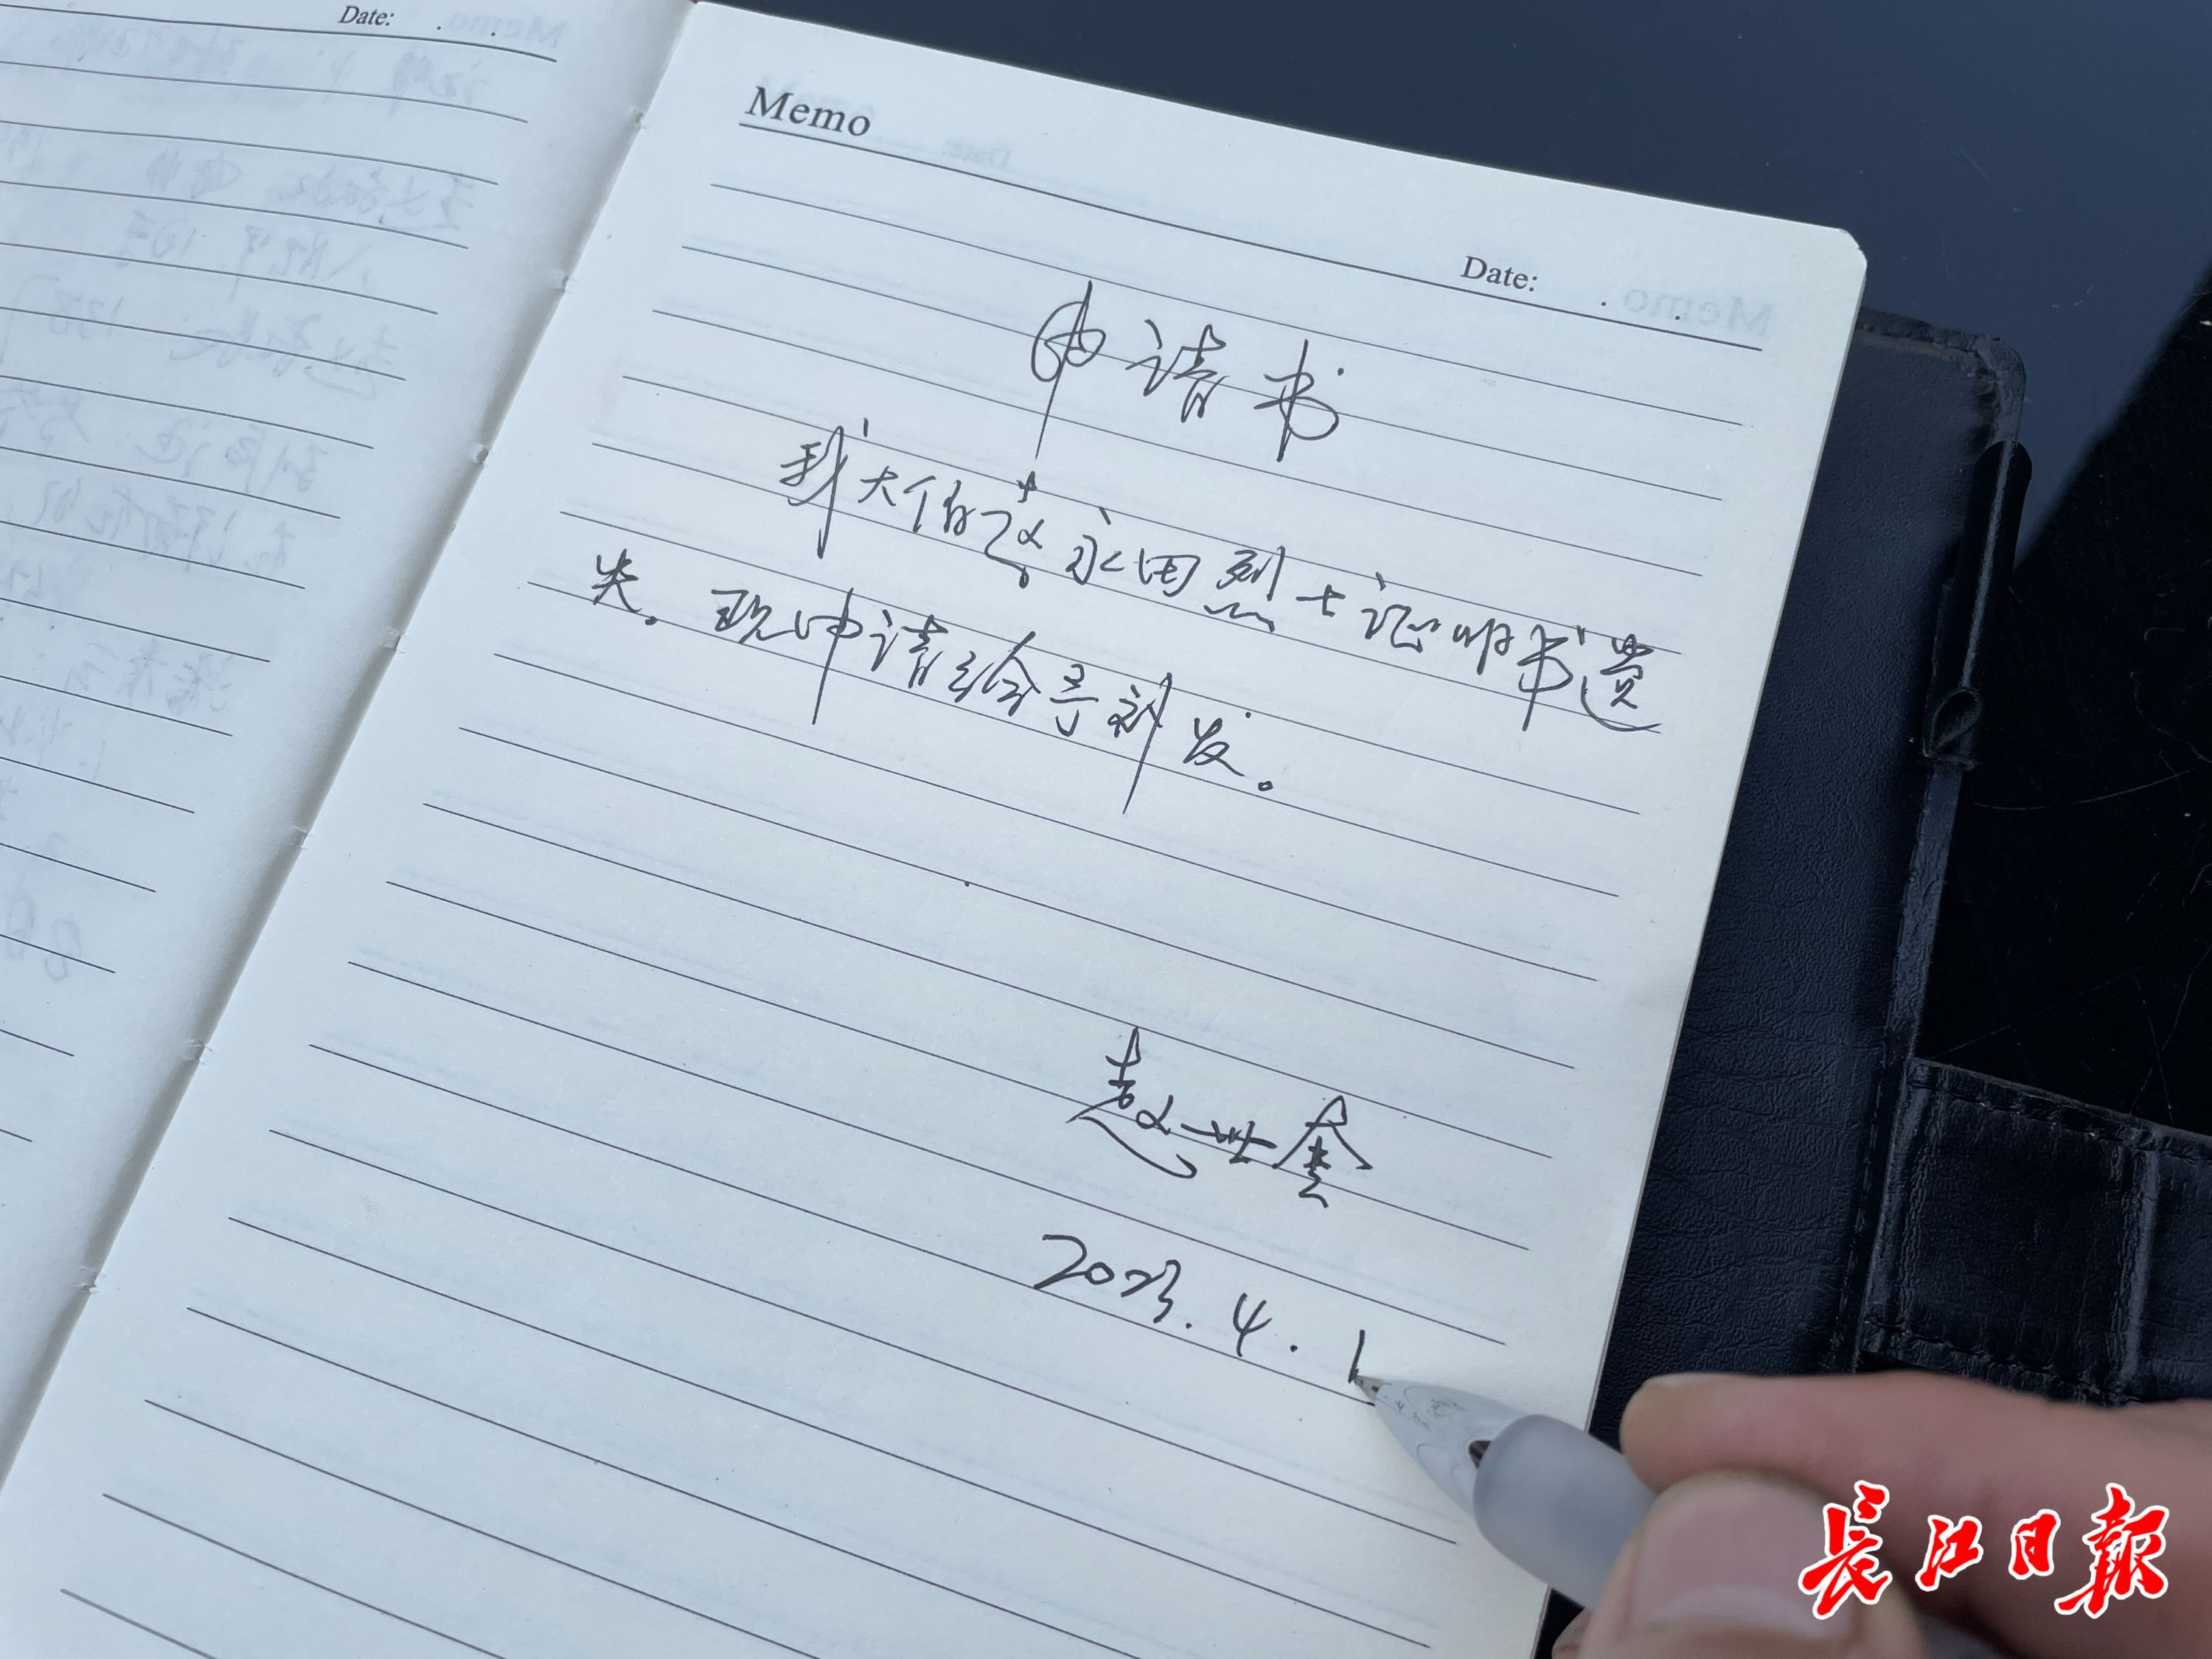 Date:
Memo
Date:
申请书
我大伯赵永田烈士证明书遗
失。现申请给予补发。
赵世金
2023.4.1
长江日報